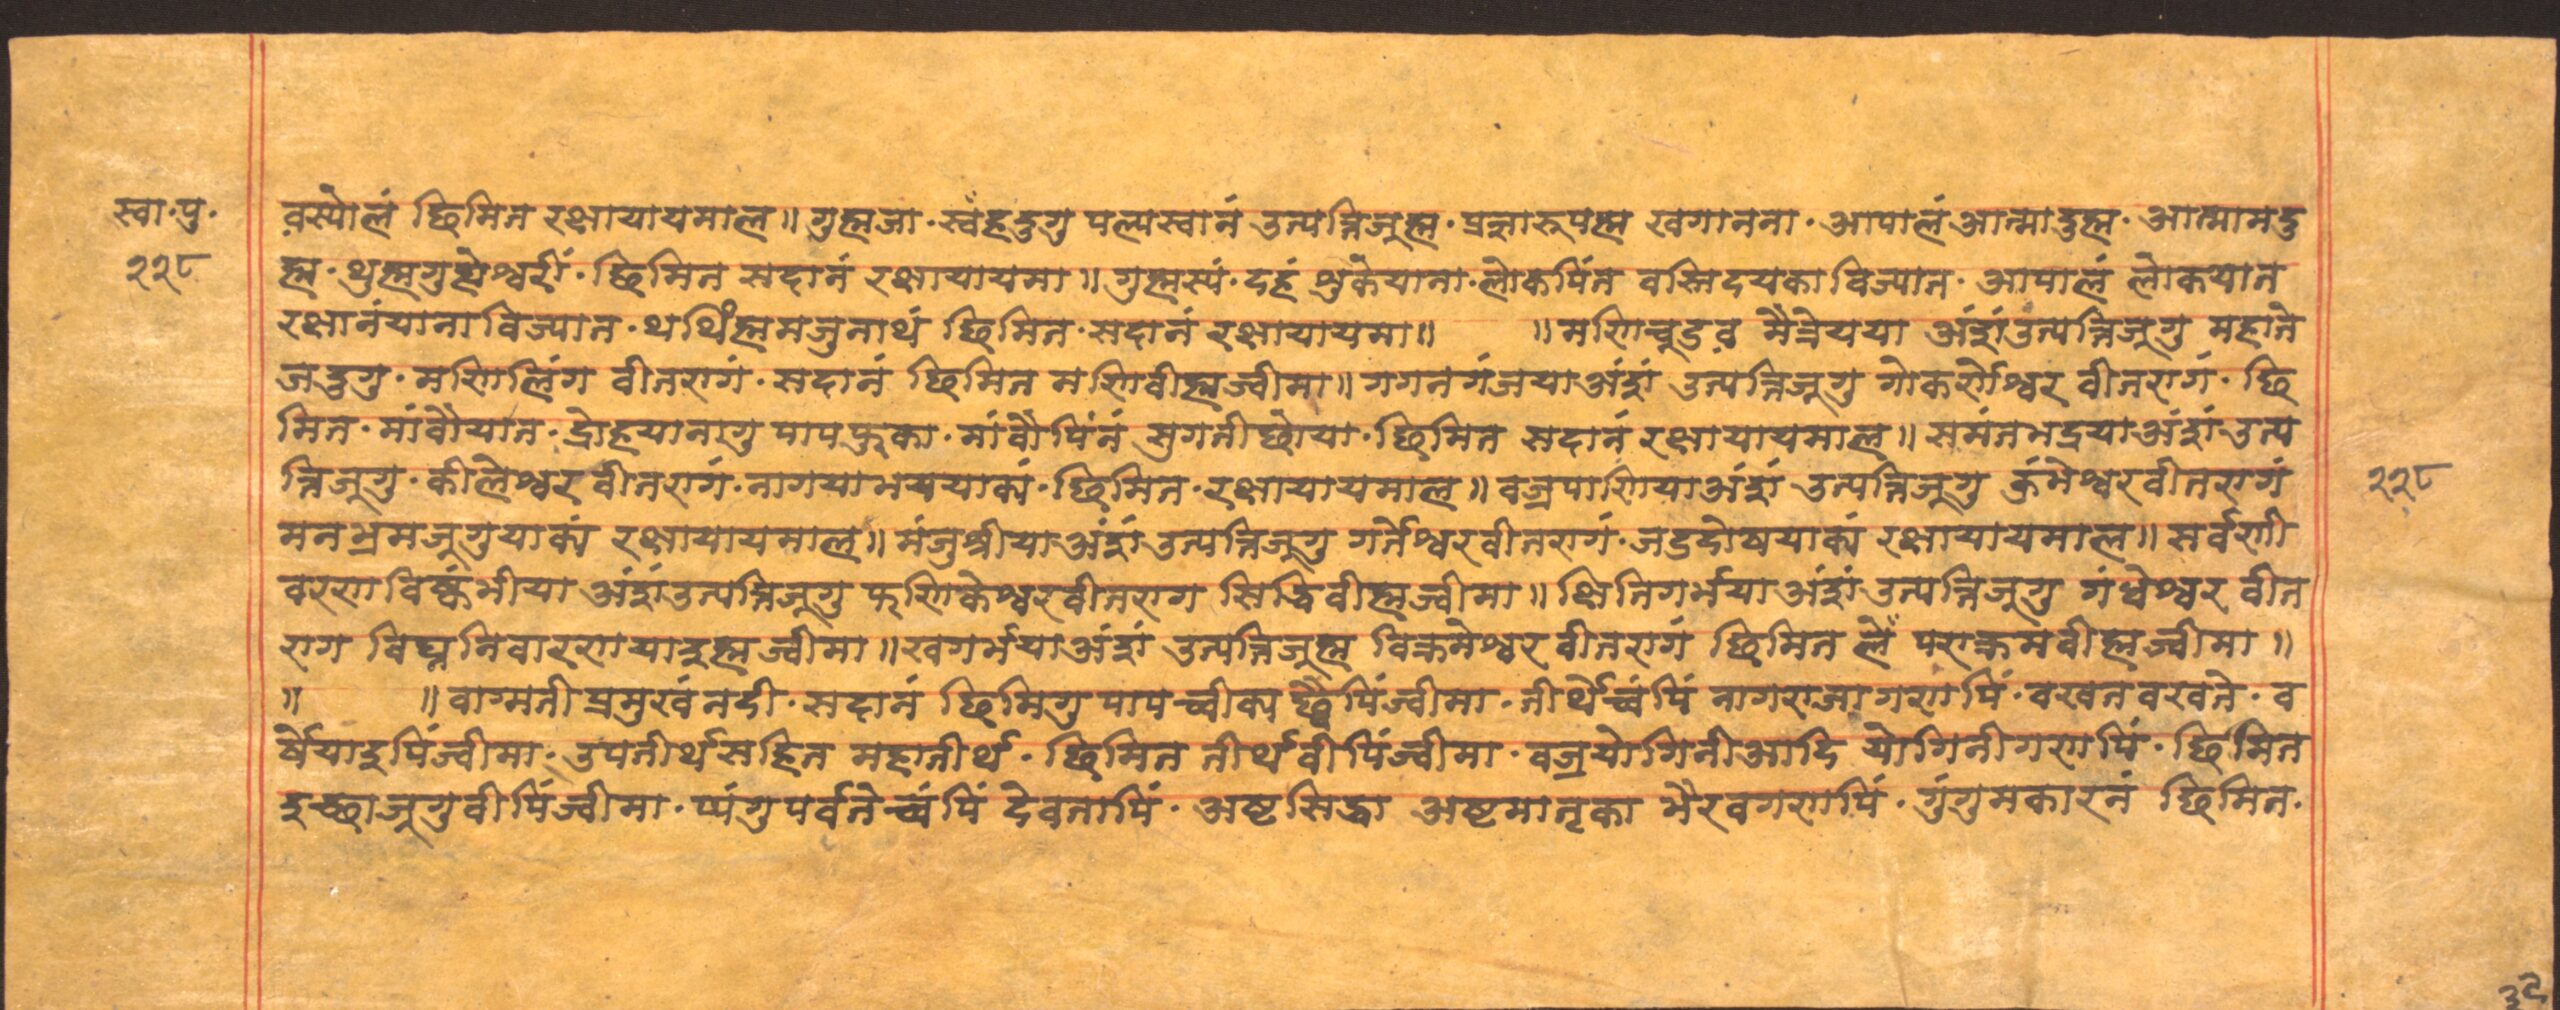 स्वा·पु·
२२८
वस्पोलं छिमित रक्षायायमाल॥ गुह्मजा·स्वंहदुगु पल्यस्वानं उत्पत्तिजूह्म·प्रज्ञारूपह्म खगानना·आपालं आत्मादुह्म·आत्मामदु
ह्म·थुह्मगुह्येश्वरीं·छिमित सदानं रक्षायायमा॥ गुह्मस्यं·दहं थ्रुकेयाना·लोकपिंत वस्तिदयका विज्यात·आपालं लोकयात
रक्षानंयाना विज्यात·थथिंह्ममञ्जुनाथं छिमित·सदानं रक्षायायमा॥ ॥मणिचूडव मैत्रेयया अंशं उत्पत्तिजूगु महाते
जदुगु·मणिलिंग वीतरागं·सदानं छिमित मणिवीह्मज्वीमा॥ गगनगंजया अंशं उत्पत्तिजूगु गोकर्णेश्वर वीतरागं·छि
मित·मांबौयात·द्रोहयानागु पापफुका·मांबौपिंनं सुगतीछोया·छिमित सदानं रक्षायायमाल॥ समंतभद्रया अंशं उत्प
त्तिजूगु·कीलेश्वर वीतरागं·नागयाभययाक्यं·छिमित·रक्षायायमाल॥ वज्रपाणिया अंशं उत्पत्तिजूगु कुंभेश्वर वीतरागं
मनभ्रमजूगुयाक्यं रक्षायायमाल॥ मंजुश्रीया अंशं उत्पत्तिजूगु गर्तेश्वर वीतरागं·जडदोषयाक्यं रक्षायायमाल॥ सर्वणी
वरण विष्कंभीया अंशं उत्पत्तिजूगु फणिकेश्वर वीतराग सिद्धिवीह्मज्वीमा॥ क्षितिगर्भया अंशं उत्पत्तिजूगु गंधेश्वर वीत
राग विघ्ननिवारणयाइह्मज्वीमा॥ खगर्भया अंशं उत्पत्तिजूह्म विक्रमेश्वर वीतरागं छिमित ल्हें पराक्रमवीह्मज्वीमा॥
॥ ॥वाग्मती प्रमुखं नदी·सदानं छिमिगु पाप च्वीक्य छैपिंज्वीमा·तीर्थेच्वंपिं नागराजागणपिं·वखत वखते·व
र्षेयाइपिंज्वीमा·उपतीर्थसहित महातीर्थ·छिमित तीर्थवीपिंज्वीमा·वज्रयोगिनीआदि योगिनीगणपिं·छिमित
इच्छाजूगुवीपिंज्वीमा·प्यंगुपर्वतेच्वंपिं देवतापिं·अष्टसिद्धा अष्टमातृका भैरवगणपिं·गुंगुमकारनं छिमित·
२२८